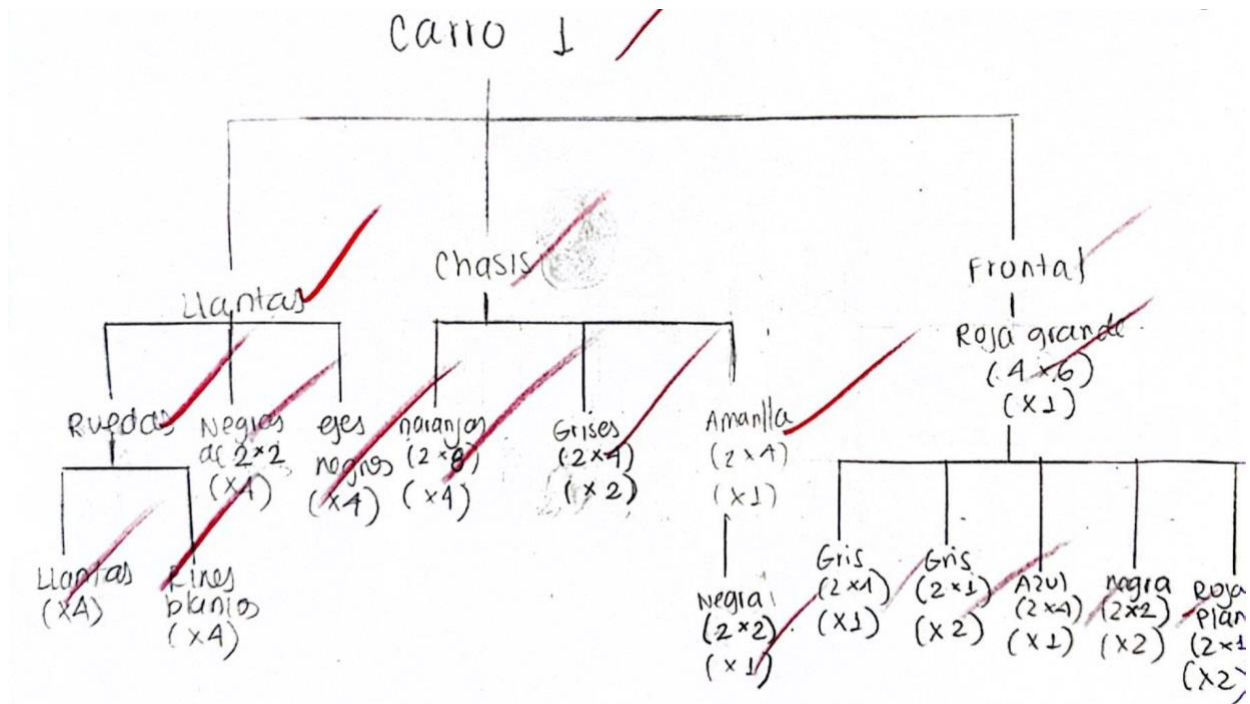 Carro 1
Llantas
Chasis
Frontal
Roja grande
(4x6)
(x1)
Ruedas
Negras
de 2x2
(x4)
ejes
negros
(x4)
naranjas
(2x8)
(x4)
Grises
(2x4)
(x2)
Amarilla
(2x4)
(x1)
Llantas
(x4)
Rines
blancos
(x4)
Negra
(2x2)
(x1)
Gris
(x1)
Gris
(2x1)
(x2)
Azul
(2x4)
(x1)
negra
(2x2)
(x2)
Roja
plan
(2x1
(x2)